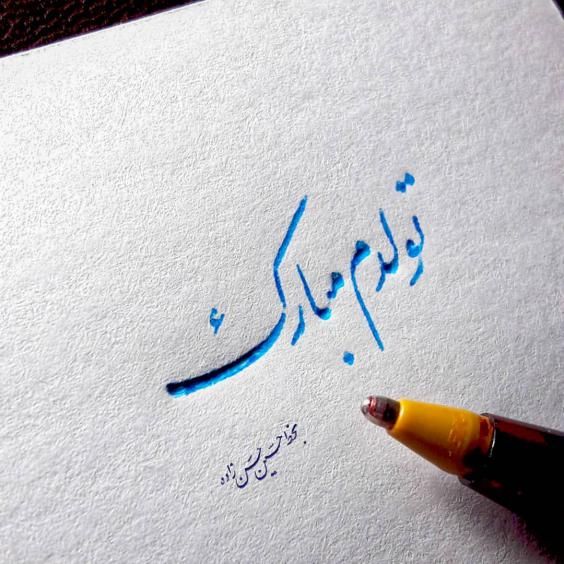 تولدم مبارک
بخط حسین حسن زاده